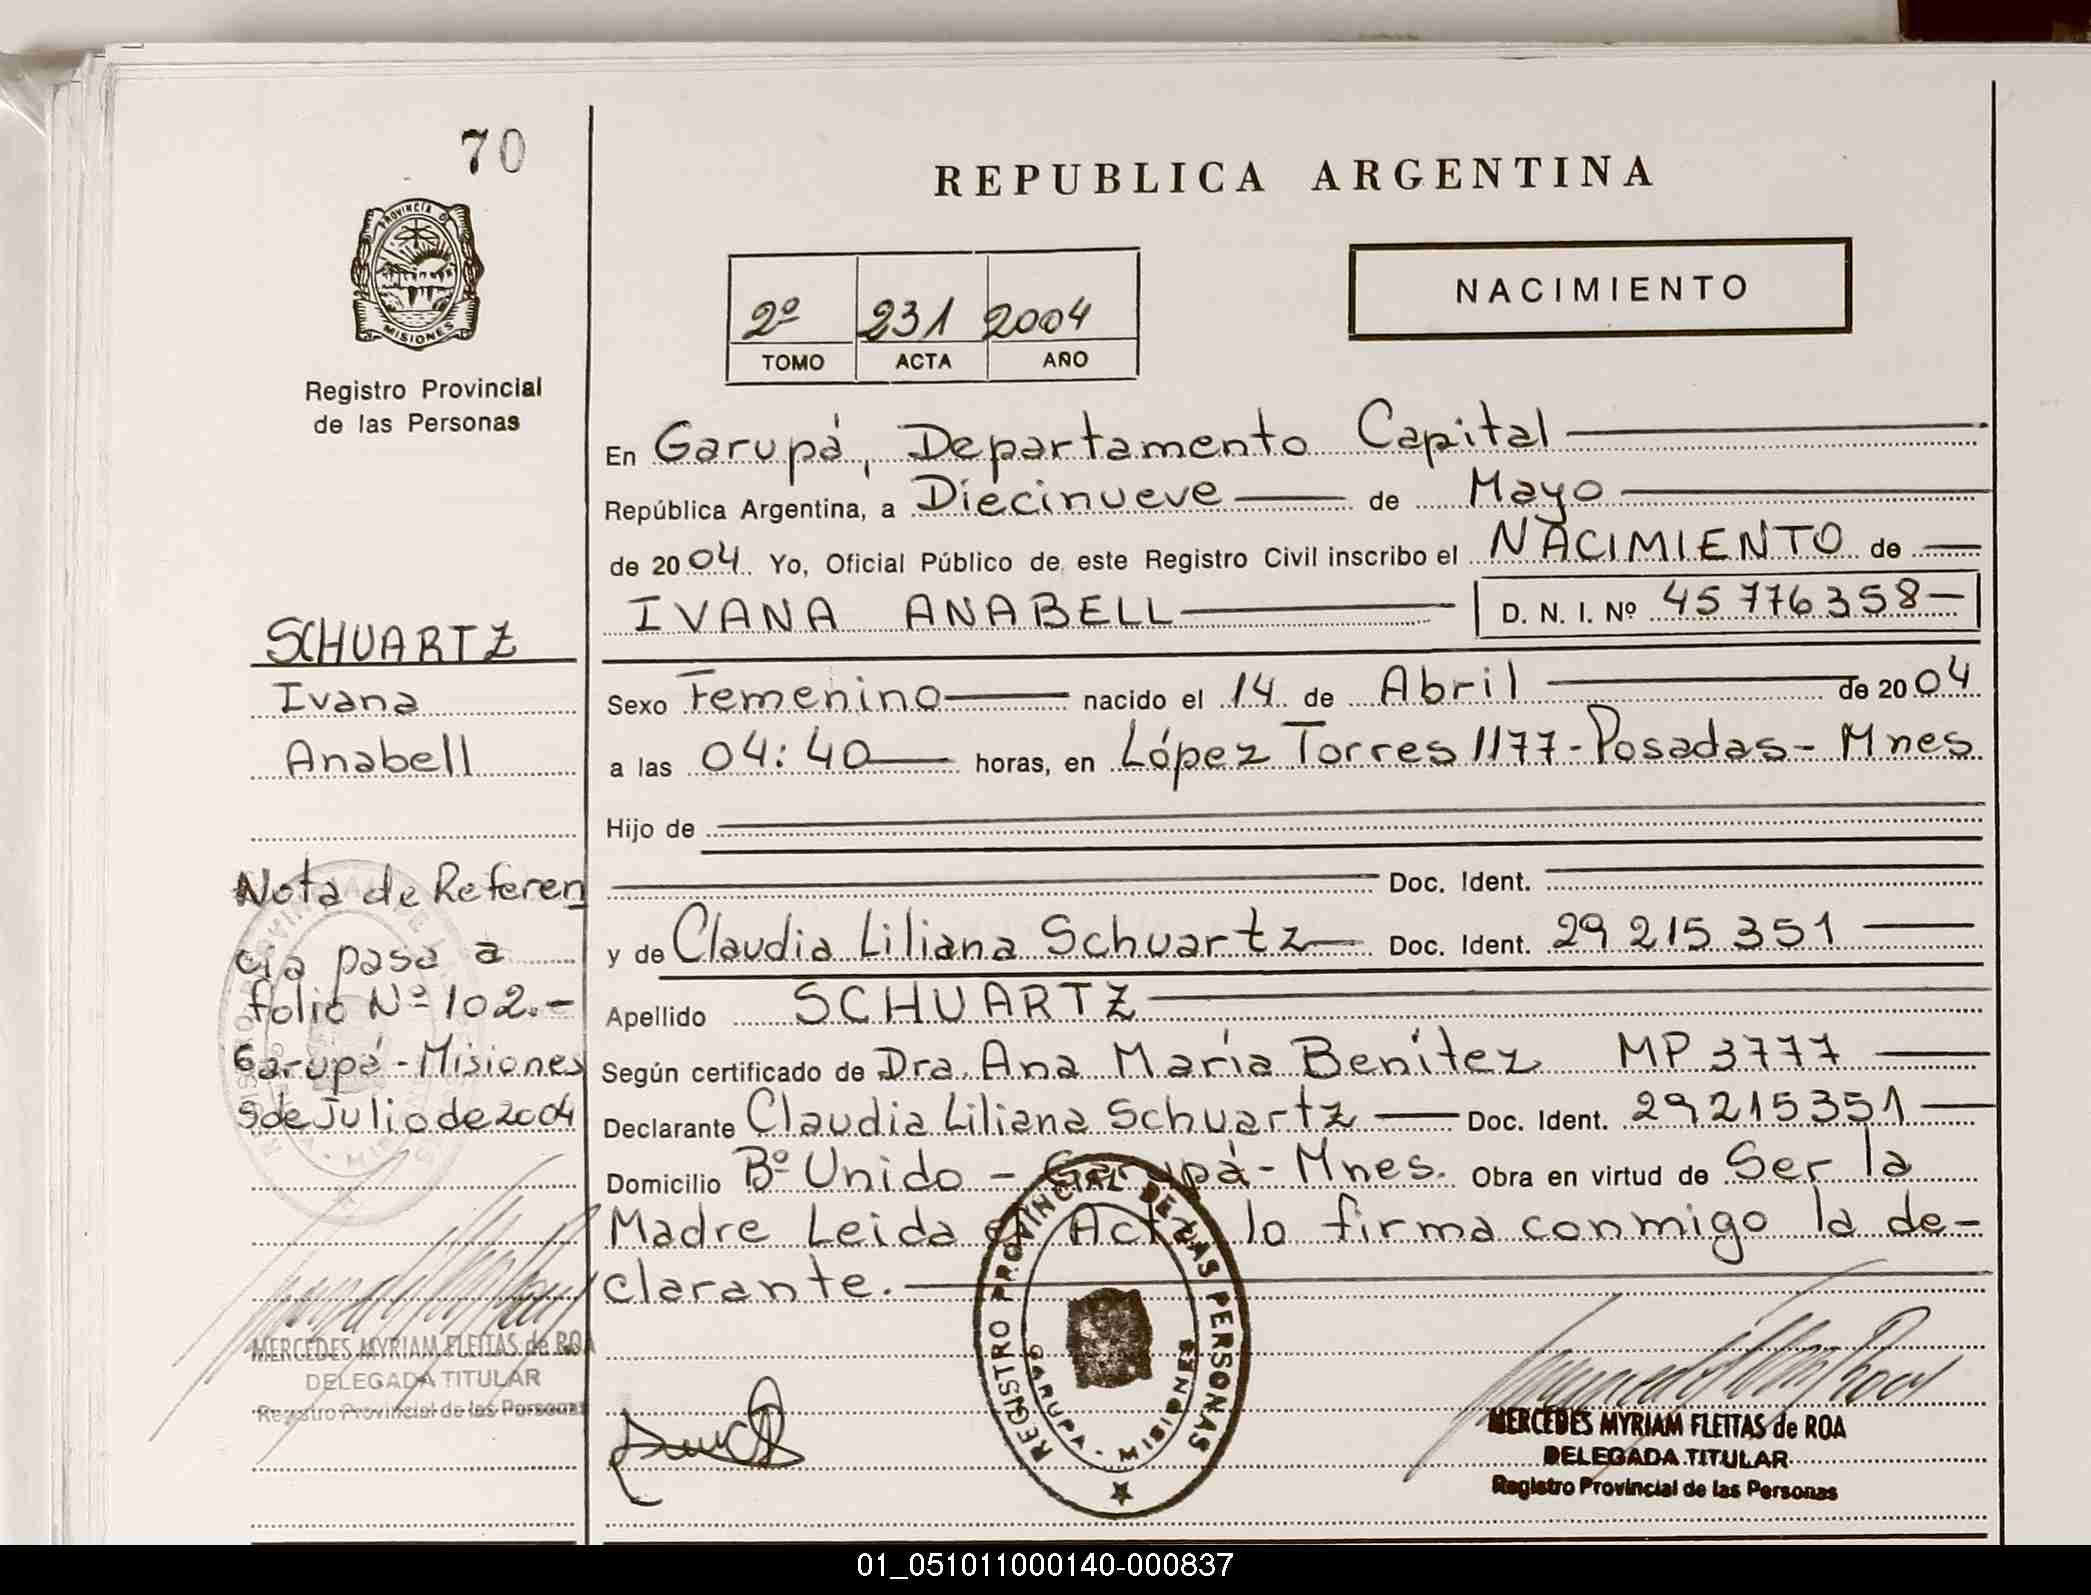 70
REPUBLICA ARGENTINA
PROVINCIA D
MISIONES
NACIMIENTO
2º 231 2004
TOMO ACTA AÑO
Registro Provincial
de las Personas
En Garupá, Departamento Capital
República Argentina, a Diecinueve de Mayo
de 2004 Yo, Oficial Público de este Registro Civil inscribo el NACIMIENTO de
IVANA ANABELL D. N. I. Nº 45776358-
SCHUARTZ
Ivana
Anabell
Sexo Femenino nacido el 14 de Abril de 2004
a las 04:40 horas, en López Torres 1177-Posadas-Mnes
Hijo de
Doc. Ident.
y de Claudia Liliana Schuartz Doc. Ident. 29 215 351
Apellido SCHUARTZ
Según certificado de Dra. Ana María Benítez MP 3777
Declarante Claudia Liliana Schuartz Doc. Ident. 29215351
Domicilio Bº Unido - Garupá - Mnes. Obra en virtud de Ser la
Madre Leida el Acta lo firma conmigo la de-
clarante.
Nota de Referen
cia pasa a
folio Nº 102.-
Garupá - Misiones
9 de Julio de 2004
MERCEDES MYRIAM FLEITAS de ROA
DELEGADA TITULAR
Registro Provincial de las Personas
REGISTRO PROVINCIAL DE LAS PERSONAS
GARUPA - MISIONES
MERCEDES MYRIAM FLEITAS de ROA
DELEGADA TITULAR
Registro Provincial de las Personas
01_051011000140-000837